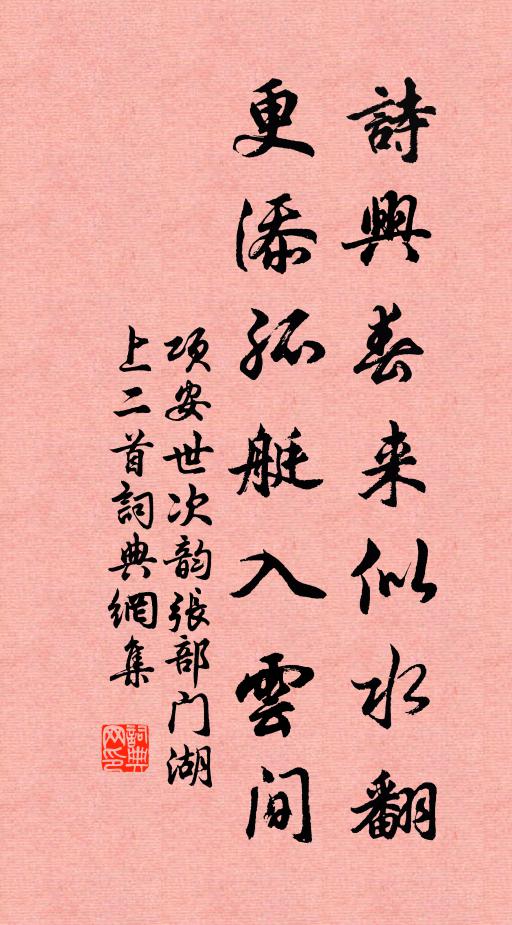 詩興春来似水翻
更添孤艇入雲间
项安世次韵張部门湖
上二首詞典網集
詞典
网印